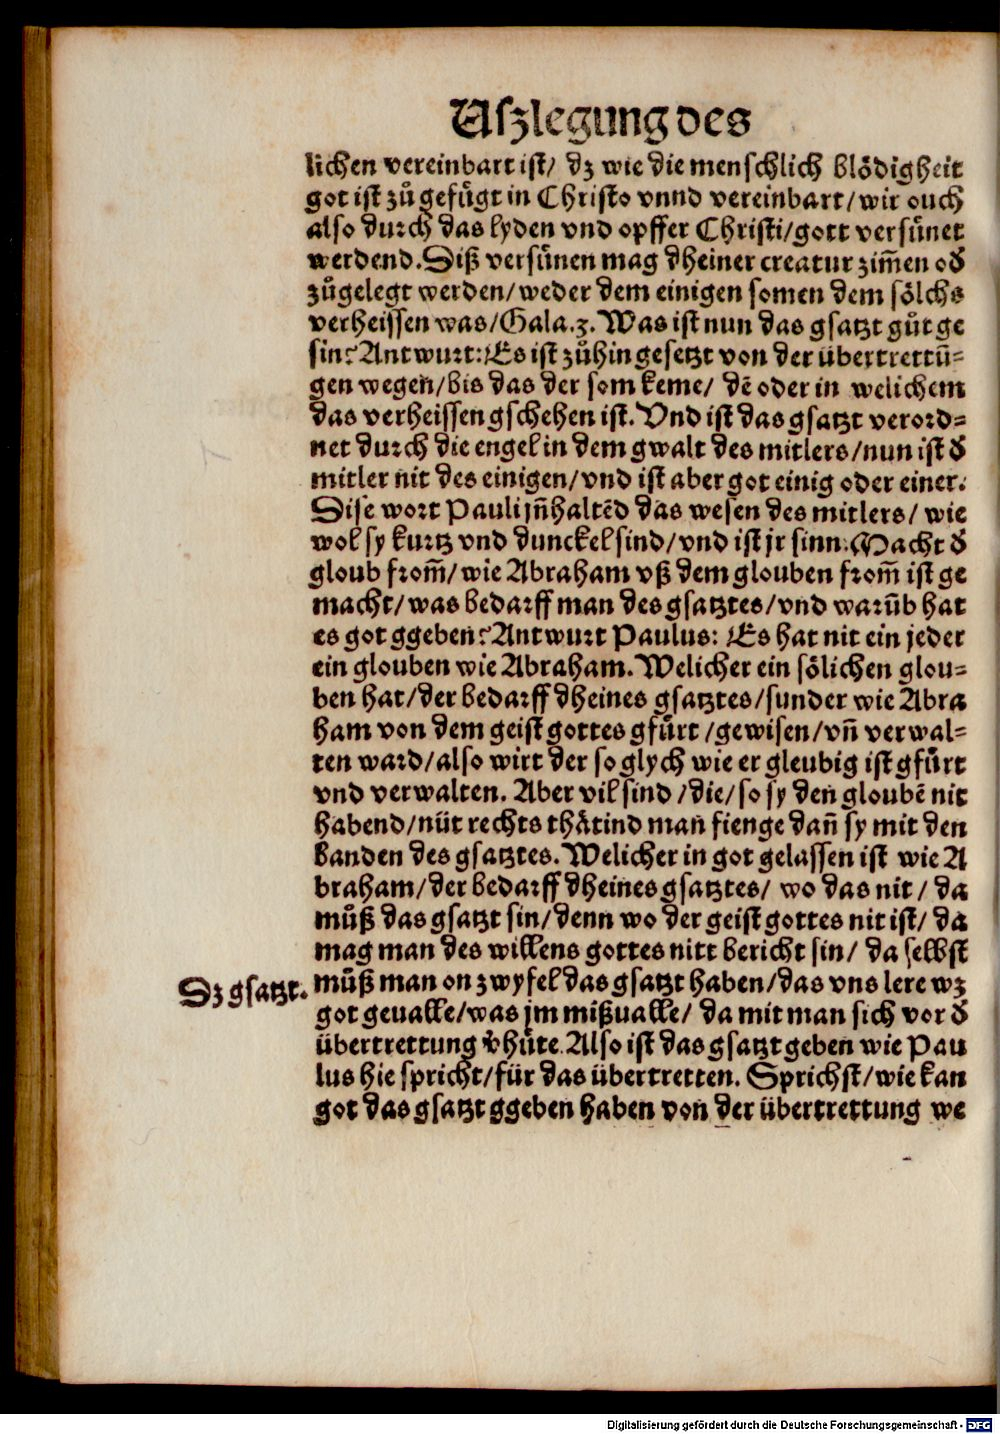 Uſzlegung des
lichen vereinbart iſt/ dz wie die menſchlich blödigheit
got iſt zů gefügt in Chriſto vnnd vereinbart/ wir ouch
alſo durch das lyden vnd opffer Chriſti/ gott verſünet
werdend. Diß verſünen mag dheiner creatur zim̄en od̓
zůgelegt werden/ weder dem einigen somen dem ſölchs
verheiſſen was/ Gala.3. Was iſt nun das gſatzt gůt ge
ſin? Antwurt: Es iſt zůhin geſetzt von der übertrettū⸗
gen wegen/ bis das der ſom keme/ dē oder in welichem
das verheiſſen gſchehen iſt. Vnd iſt das gſatzt verord⸗
net durch die engel in dem gwalt des mitlers/ nun iſt d̓
mitler nit des einigen/ vnd iſt aber got einig oder einer.
Diſe wort Pauli jn̄haltēd das weſen des mitlers/ wie
wol ſy kurtz vnd dunckel ſind/ vnd iſt jr ſinn: Macht d̓
gloub from̄/ wie Abraham vß dem glouben from̄ iſt ge
macht/ was bedarff man des gſatztes/ vnd warūb hat
es got ggeben? Antwurt Paulus: Es hat nit ein jeder
ein glouben wie Abraham. Welicher ein ſölichen glou⸗
ben hat/ der bedarff dheines gſatztes/ ſunder wie Abra
ham von dem geiſt gottes gfürt /gewiſen/ vn̄ verwal⸗
ten ward/ alſo wirt der ſo glych wie er gleubig iſt gfürt
vnd verwalten. Aber vil ſind /die/ ſo ſy den gloubē nit
habend/ nüt rechts thätind man fienge dan̄ ſy mit den
banden des gſatztes. Welicher in got gelaſſen iſt wie A
braham/ der bedarff dheines gſatztes/ wo das nit / da
můß das gſatzt ſin/ denn wo der geiſt gottes nit iſt/ da
mag man des willens gottes nitt bericht ſin/ da ſelbſt
můß man on zwyfel das gſatzt haben/ das vns lere wz
Dz gſatzt.
got geualle/ was jm mißualle/ da mit man ſich vor d̓
übertrettung v̓hüte. Alſo iſt das gſatzt geben wie Pau
lus hie ſpricht/ für das übertretten. Sprichſt/ wie kan
got das gſatzt ggeben haben von der übertrettung we
Digitalisierung gefördert durch die Deutsche Forschungsgemeinschaft - DFG